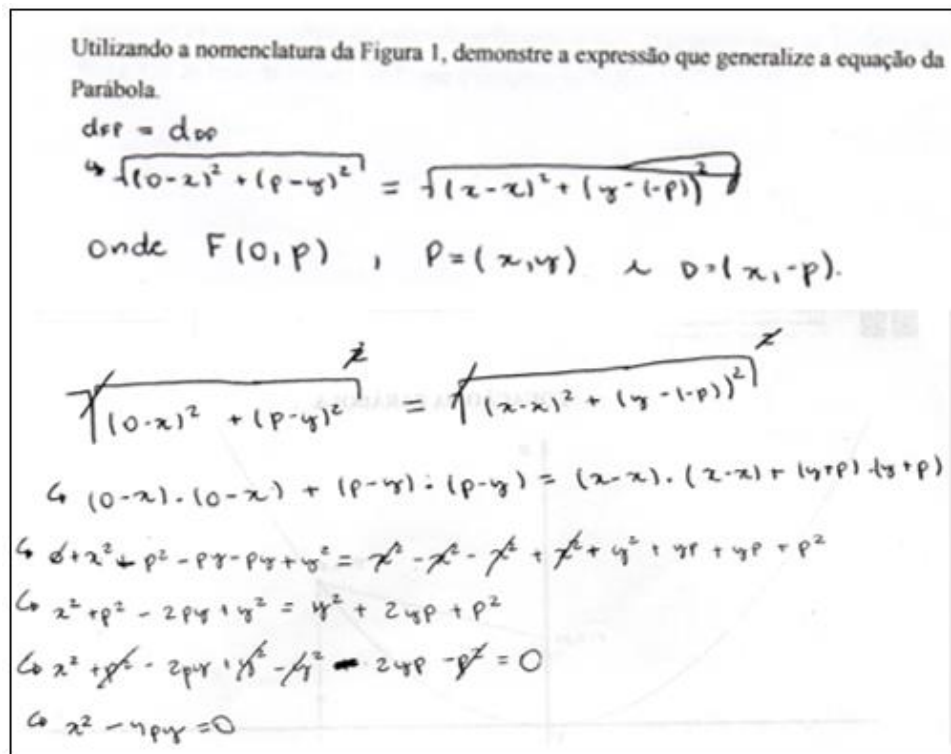 Utilizando a nomenclatura da Figura 1, demonstre a expressão que generalize a equação da
Parábola.
dFP = dDP
↳ √(0-x)² + (p-y)² = √(x-x)² + (y-(-p))²
onde F(0,p) , P=(x,y) e D=(x,-p).
√(0-x)² + (p-y)² ² = √(x-x)² + (y-(-p))² ²
↳ (0-x).(0-x) + (p-y).(p-y) = (x-x).(x-x) + (y+p).(y+p)
↳ 0+x²+p²-py-py+y² = x²-x²-x²+x²+y²+yp+yp+p²
↳ x²+p²-2py+y² = y²+2yp+p²
↳ x²+p²-2py+y²-y²-2yp-p²=0
↳ x²-4py=0